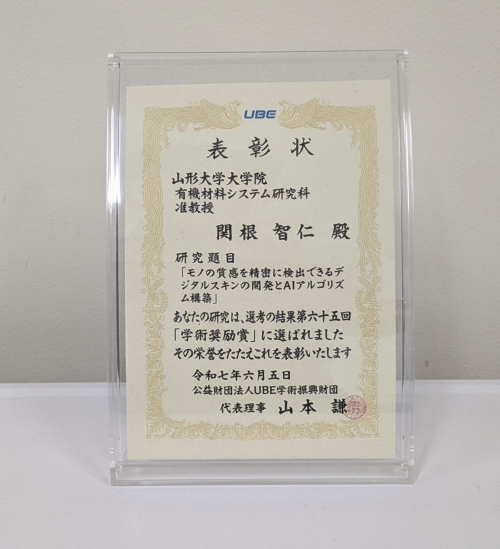 UBE
表彰状
山形大学大学院
有機材料システム研究科
准教授
関根 智仁 殿
研究題目
「モノの質感を精密に検出できるデ
ジタルスキンの開発とAIアルゴリズ
ム構築」
あなたの研究は、選考の結果第六十五回
「学術奨励賞」に選ばれました
その栄誉をたたえこれを表彰いたします
令和七年六月五日
公益財団法人UBE学術振興財団
代表理事 山本 謙